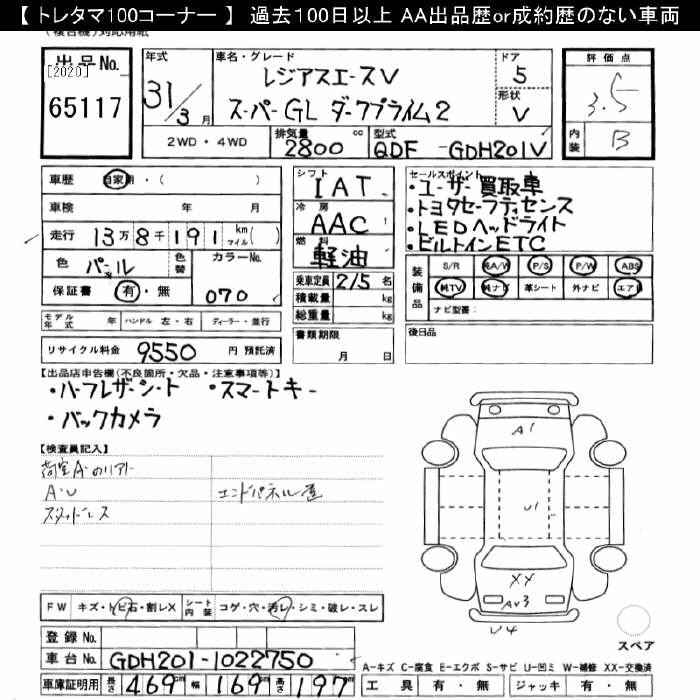 【 トレタマ100コーナー 】 過去100日以上 AA出品歴or成約歴のない車両
出品No.
[2020]
65117
年式
31/3月
車名・グレード
レジアスエースV
スーパーGL ダークプライム2
ドア
5
形状
V
評価点
3.5
内装
B
2WD・4WD
排気量
2800cc
型式
QDF-GDH201V
車歴 自家用・( )
車検 年 月
走行 13万8千191 km マイル( )
色 パール 色替 カラーNo.
保証書 有・無 070
モデル年式 年 ハンドル 左・右 ディーラー・並行
リサイクル料金 9550 円 預託済
シフト
IAT
冷房
AAC
燃料
軽油
乗車定員 2/5 名
積載量 kg
総重量 kg
書類期限
月 日
セールスポイント
・ユーザー買取車
・トヨタセーフティセンス
・LEDヘッドライト
・ビルトインETC
装備品 S/R 純A/W P/S P/W ABS
純TV 純ナビ 革シート 外ナビ エアB
ナビ型番:
後日品
【出品店申告欄(不良箇所・欠品・注意事項等)】
・ハーフレザーシート ・スマートキー
・バックカメラ
【検査員記入】
AU
エンドパネル
A1
U1
XX
AU3
U4
FW キズ・トビ石・割レX シート内装 コゲ・穴・汚レ・シミ・破レ・スレ
登録No.
車台No. GDH201-1022750
車庫証明用 長さ 469cm 幅 169cm 高さ 197cm
スペア
A-キズ C-腐食 E-エクボ S-サビ U-凹ミ W-補修 XX-交換済
工具 有・無 ジャッキ 有・無